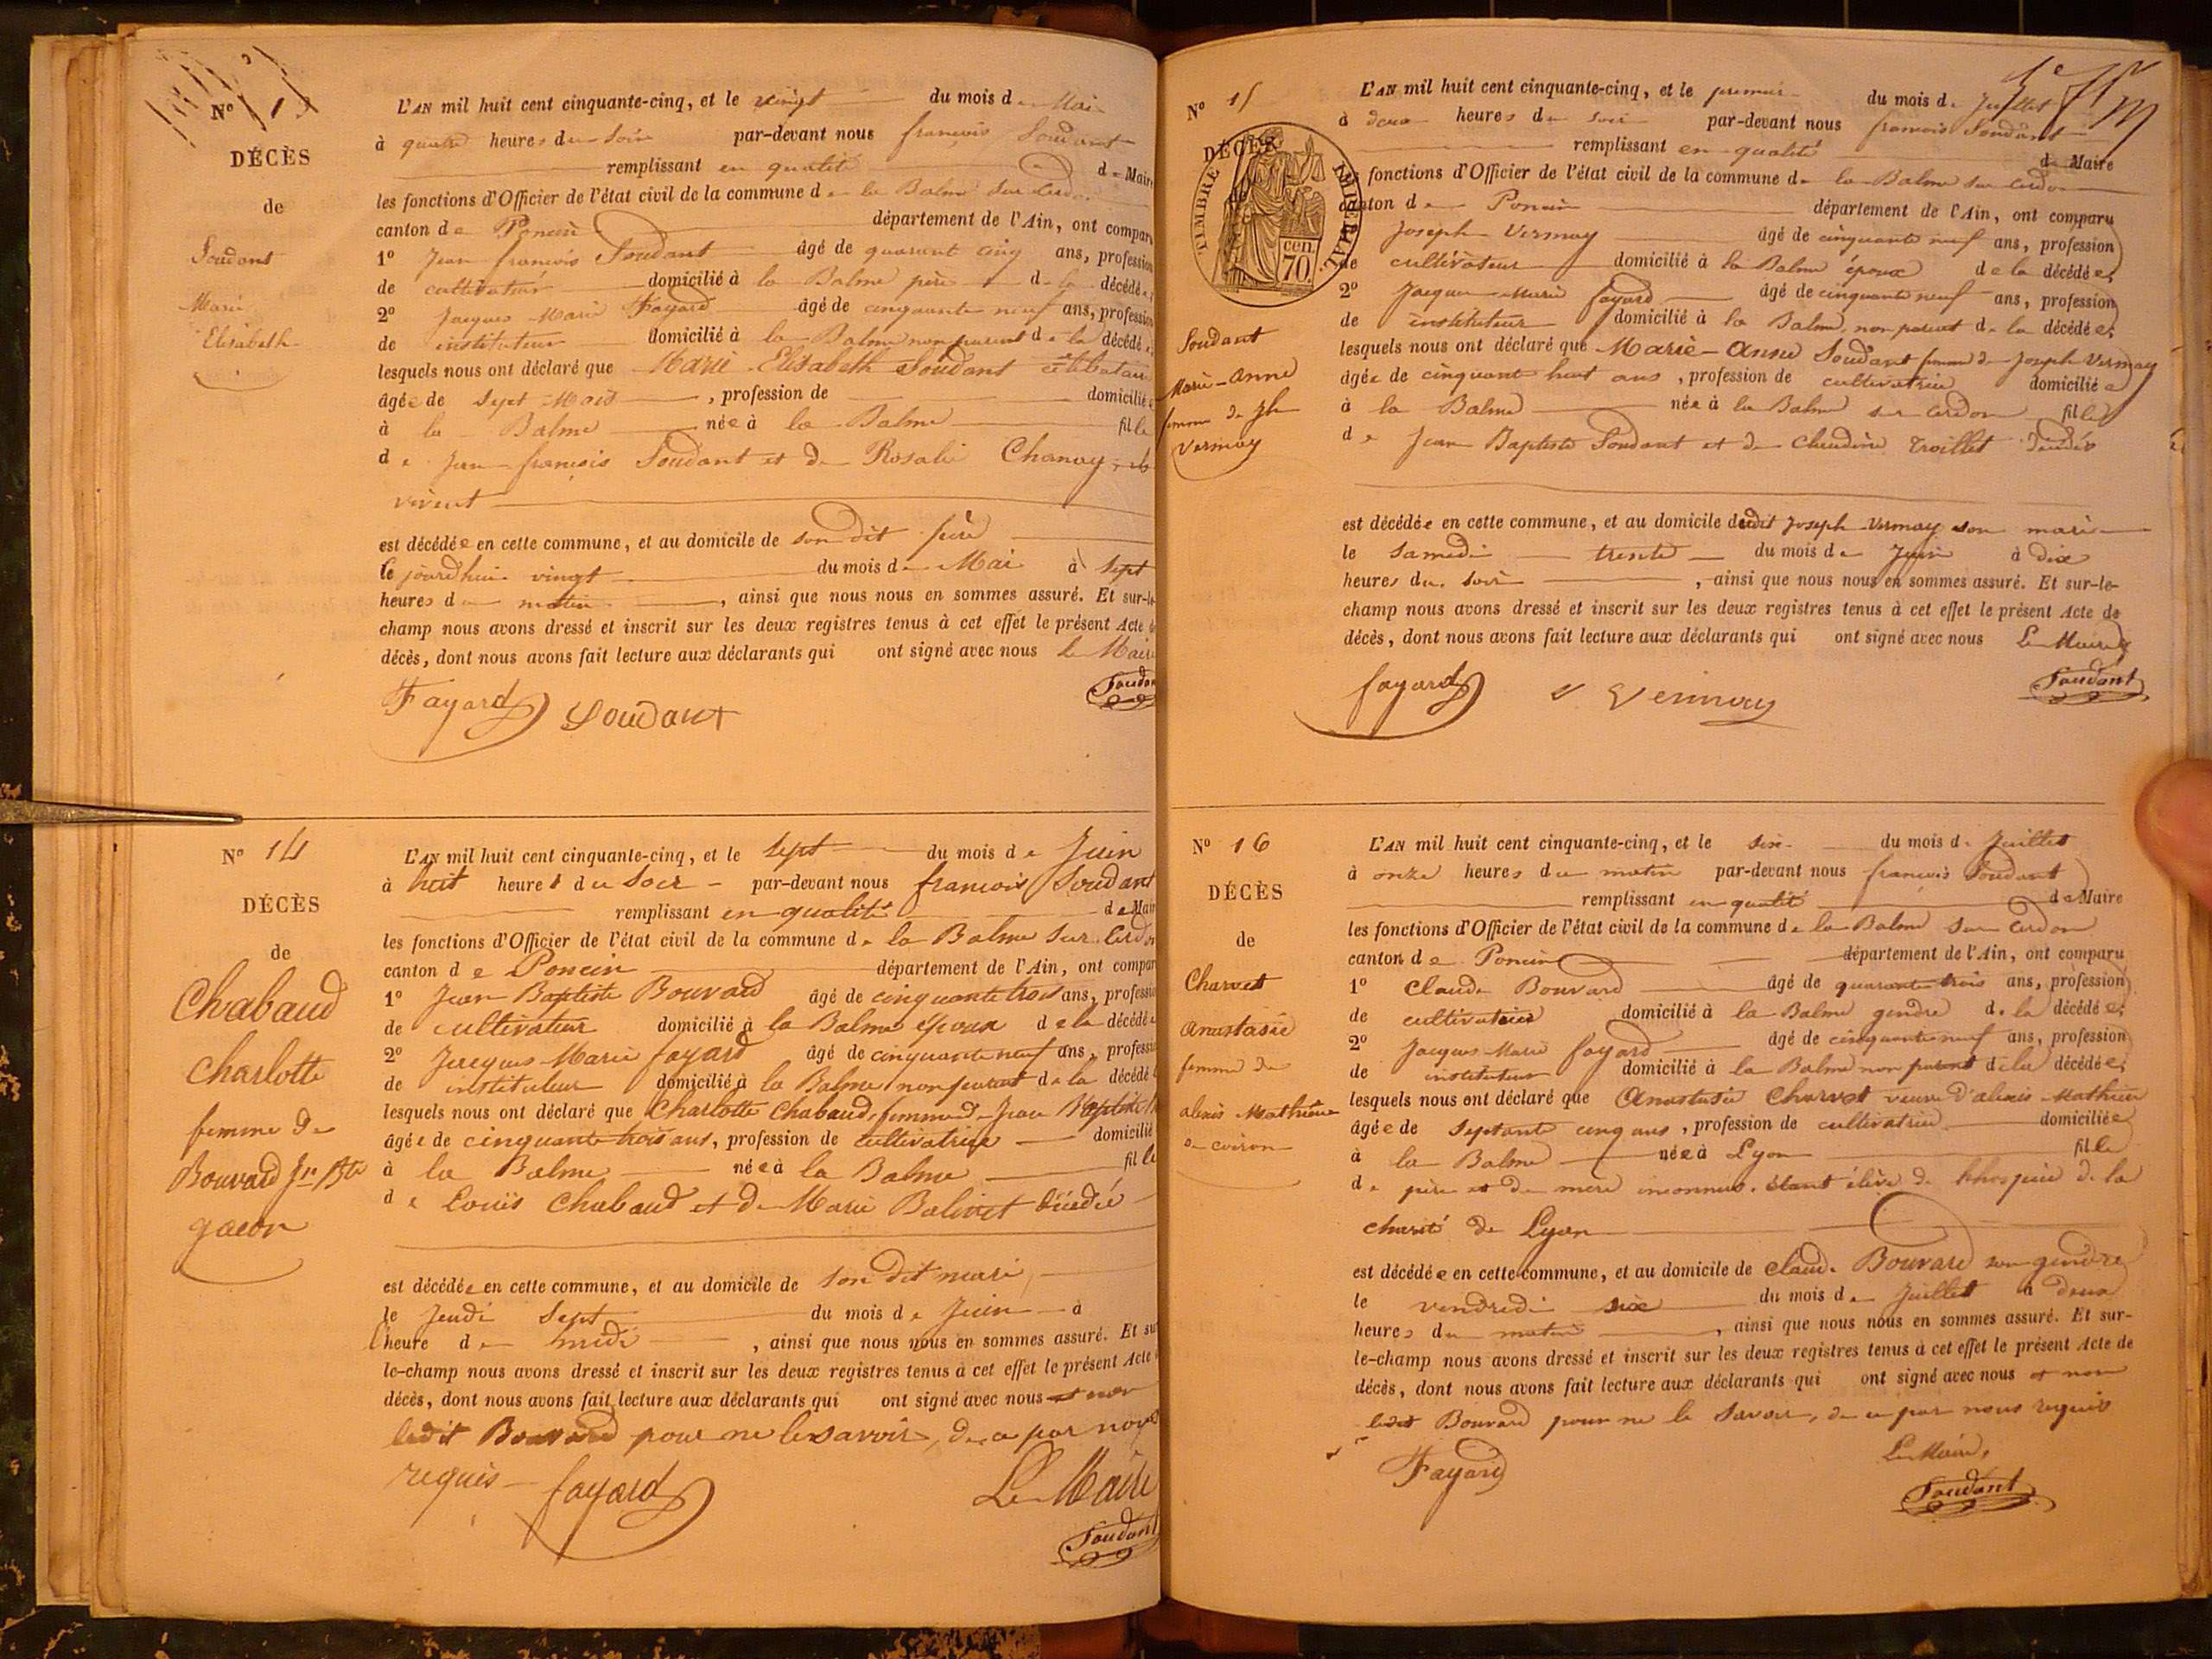 N° 1
DÉCÈS
de
Soudant
Marie
Elisabeth
L'AN mil huit cent cinquante-cinq, et le vingt du mois de Mai
à quatre heures du Soir par-devant nous françois Soudant
remplissant en qualité de Maire
les fonctions d'Officier de l'état civil de la commune de la Balme sur Cerdon
canton de Poncin département de l'Ain, ont comparu
1° Jean françois Soudant âgé de quarant cinq ans, profession
de cultivateur domicilié à la Balme père de la décédée,
2° Jacques Marie Fayard âgé de cinquante neuf ans, profession
de instituteur domicilié à la Balme non parent de la décédée,
lesquels nous ont déclaré que Marie Elisabeth Soudant célibataire
âgée de Sept Mois, profession de domiciliée
à la Balme née à la Balme fille
de Jean françois Soudant et de Rosalie Chanay,
vivent
est décédée en cette commune, et au domicile de son dit père
le jourdhui vingt du mois de Mai à Sept
heures du matin, ainsi que nous nous en sommes assuré. Et sur-le-
champ nous avons dressé et inscrit sur les deux registres tenus à cet effet le présent Acte de
décès, dont nous avons fait lecture aux déclarants qui ont signé avec nous Le Maire
Fayard Soudant Soudant
N° 14
DÉCÈS
de
Chabaud
Charlotte
femme de
Bouvard Jn Bte
L'AN mil huit cent cinquante-cinq, et le Sept du mois de Juin
à huit heures du Soir par-devant nous françois Soudant
remplissant en qualité de Maire
les fonctions d'Officier de l'état civil de la commune de la Balme sur Cerdon
canton de Poncin département de l'Ain, ont comparu
1° Jean Baptiste Bouvard âgé de cinquante trois ans, profession
de cultivateur domicilié à la Balme époux de la décédée
2° Jacques-Marie fayard âgé de cinquante neuf ans, profession
de instituteur domicilié à la Balme non parent de la décédée
lesquels nous ont déclaré que Charlotte Chabaud, femme de Jean Baptiste
âgée de cinquante trois ans, profession de cultivatrice domicilié
à la Balme née à la Balme fille
de Louis Chabaud et de Marie Balivet
est décédée en cette commune, et au domicile de son dit mari,
le Jeudi Sept du mois de Juin à
l'heure de midi, ainsi que nous nous en sommes assuré. Et sur-
le-champ nous avons dressé et inscrit sur les deux registres tenus à cet effet le présent Acte
décès, dont nous avons fait lecture aux déclarants qui ont signé avec nous et non
ledit Bouvard pour ne le savoir, de ce par nous
requis fayard Le Maire
Soudant
N° 15
DÉCÈS
TIMBRE IMPERIAL
cen. 70.
Soudant
Marie-Anne
femme de Jh
Vermay
L'AN mil huit cent cinquante-cinq, et le premier du mois de Juillet
à deux heures du soir par-devant nous francois Soudant
remplissant en qualité de Maire
fonctions d'Officier de l'état civil de la commune de la Balme sur Cerdon
canton de Poncin département de l'Ain, ont comparu
Joseph Vermay âgé de cinquante neuf ans, profession
de cultivateur domicilié à la Balme époux de la décédée,
2° Jacques Marie fayard âgé de cinquante neuf ans, profession
de instituteur domicilié à la Balme, non parent de la décédée,
lesquels nous ont déclaré que Marie-Anne Soudant femme de Joseph Vermay
âgée de cinquante huit ans, profession de cultivatrice domiciliée
à la Balme née à la Balme sur Cerdon fille
de Jean Baptiste Soudant et de Claudine Troillet
est décédée en cette commune, et au domicile dudit Joseph Vermay son mari
le Samedi trente du mois de Juin à dix
heures du soir, ainsi que nous nous en sommes assuré. Et sur-le-
champ nous avons dressé et inscrit sur les deux registres tenus à cet effet le présent Acte de
décès, dont nous avons fait lecture aux déclarants qui ont signé avec nous Le Maire
fayard Soudant
N° 16
DÉCÈS
de
Charvet
Anastasie
femme de
alexis Mathieu
L'AN mil huit cent cinquante-cinq, et le six du mois de Juillet
à onze heures du matin par-devant nous françois Soudant
remplissant en qualité de Maire
les fonctions d'Officier de l'état civil de la commune de la Balme sur Cerdon
canton de Poncin département de l'Ain, ont comparu
1° Claude Bouvard âgé de quarante trois ans, profession
de cultivateur domicilié à la Balme gendre de la décédée,
2° Jacques Marie fayard âgé de cinquante neuf ans, profession
de instituteur domicilié à la Balme non parent de la décédée,
lesquels nous ont déclaré que Anastasie Charvet veuve d'alexis Mathieu
âgée de Septante cinq ans, profession de cultivatrice domiciliée
à la Balme née à Lyon fille
de père et de mère inconnus. étant élève de l'hospice de la
charité de Lyon
est décédée en cette commune, et au domicile de Claude Bouvard son gendre
le vendredi six du mois de Juillet à deux
heures du matin, ainsi que nous nous en sommes assuré. Et sur-
le-champ nous avons dressé et inscrit sur les deux registres tenus à cet effet le présent Acte de
décès, dont nous avons fait lecture aux déclarants qui ont signé avec nous et non
ledit Bouvard pour ne le Savoir, de ce par nous requis
Fayard Le Maire,
Soudant